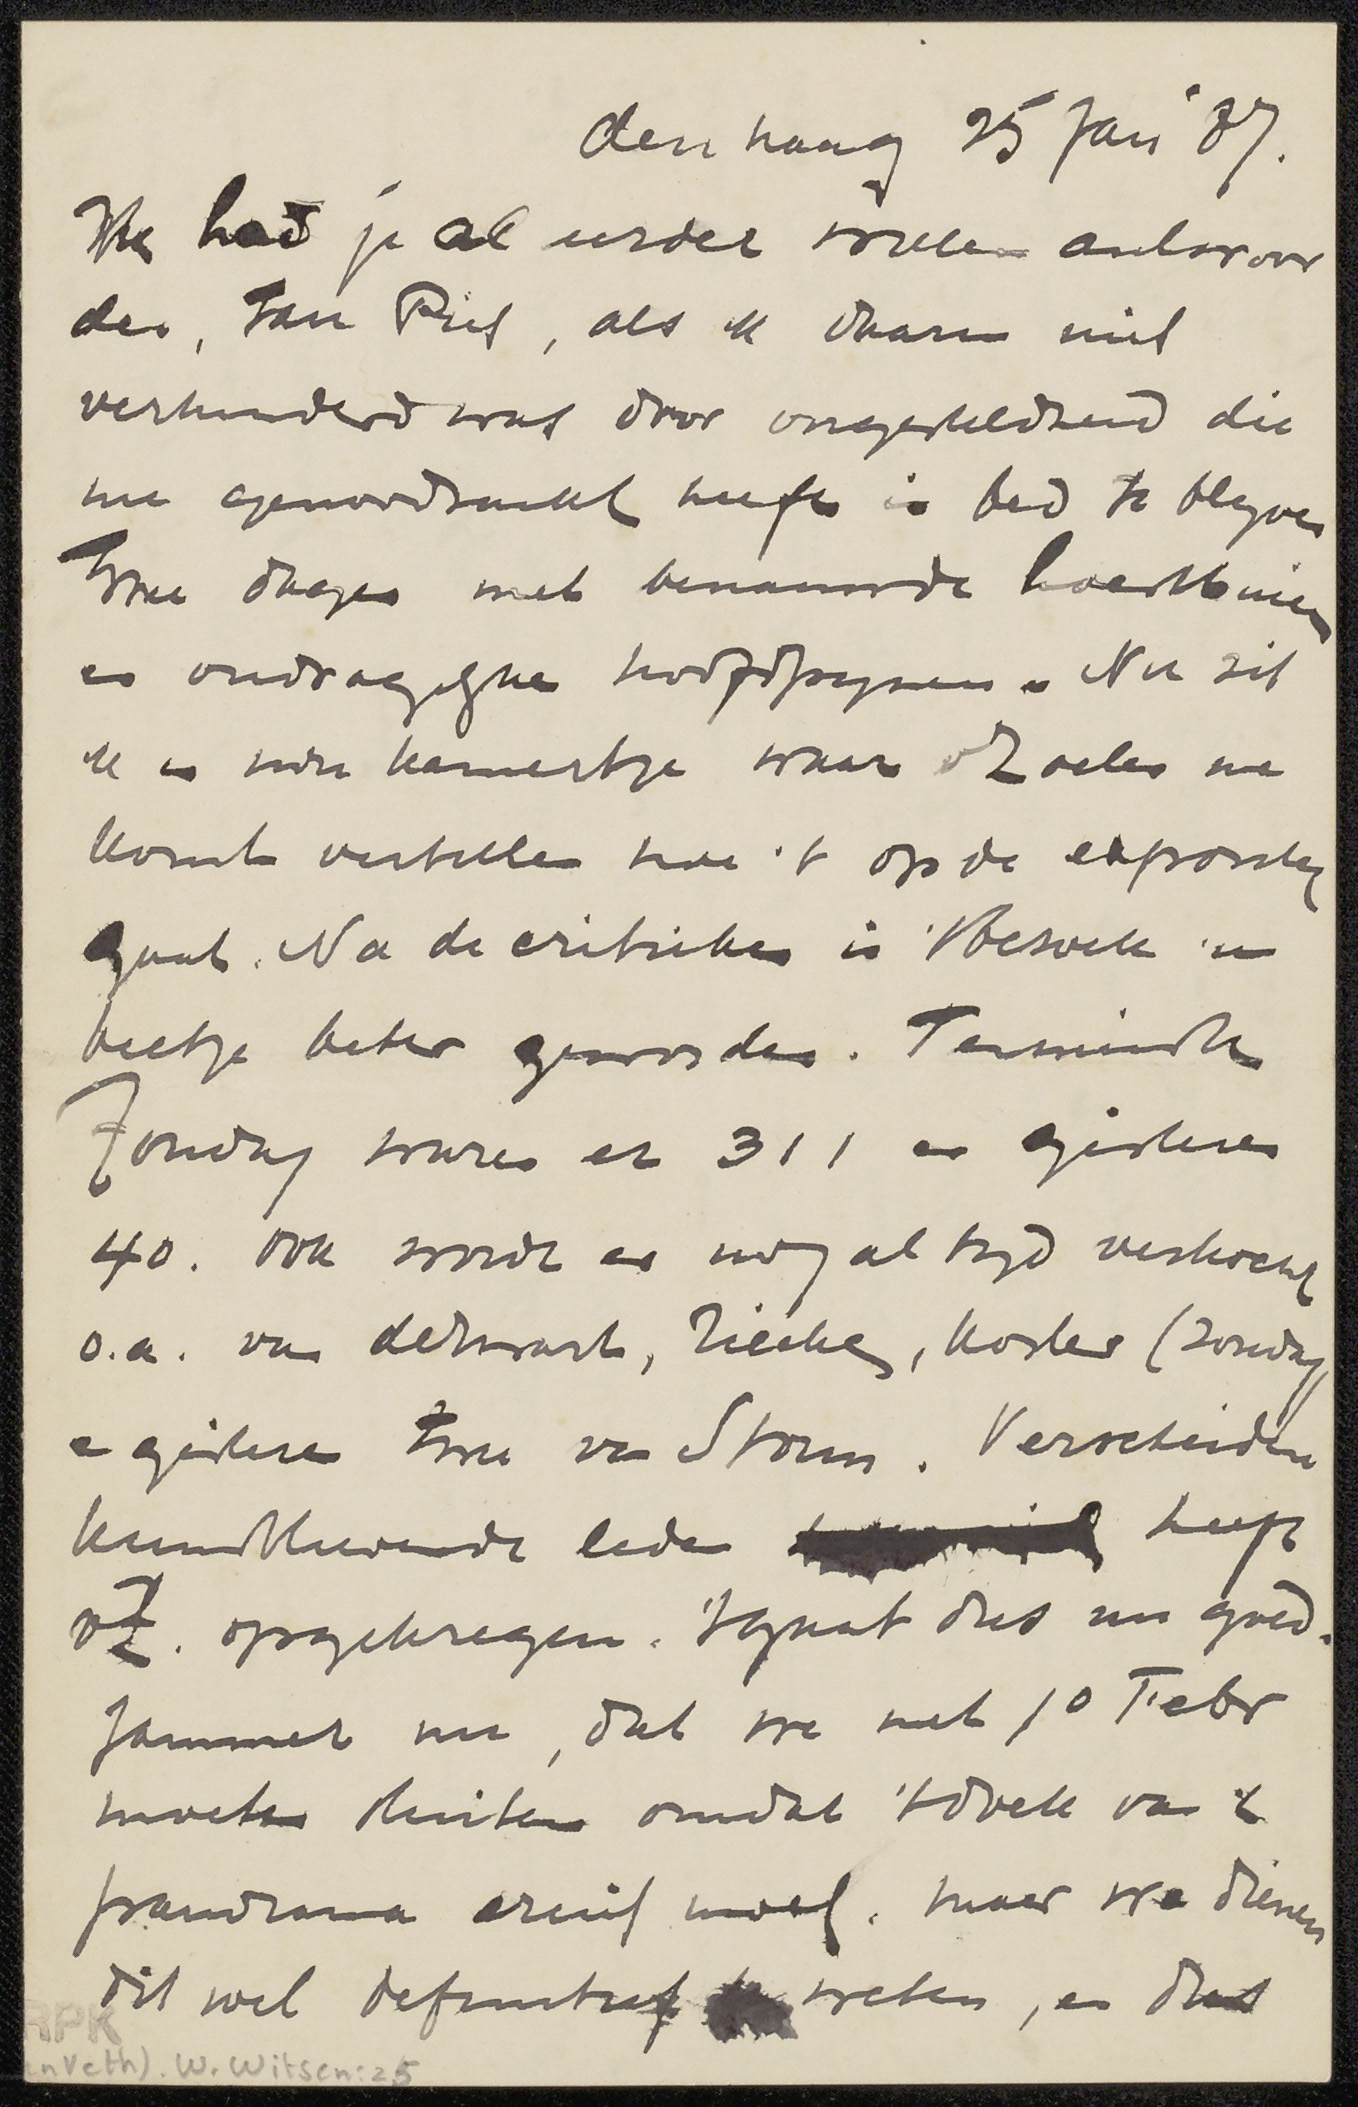 den haag 25 Jan '87.
Ik had je al eerder willen antwoor
den, Jan Piet, als ik daarin niet
verhinderd was door ongesteldheid die
me genoodzaakt heeft in bed te blijven
twee dagen met benauwde hoestbuien
en ondragelyke hoofdpynen. Nu zit
ik in mijn kamertje waar vZoelen me
komt vertellen hoe 't op de expositie
gaat. Na de critieken is 't bezoek 'n
beetje beter geworden. Tenminste
Zondag waren er 311 en gisteren
40. Ook wordt er nog altyd verkocht
o.a. van deZwart, Zilcken, Koster (zondag
en gisteren twee van Storm. Verscheidene
kunstlievende leden heeft
vZ. opgekregen. 't gaat dus nu goed.
Jammer nu, dat we met 10 Febr
moeten sluiten omdat 't doek van 't
panorama eruit moet. maar we dienen
dit wel definitief te weten, en dus
RPK
anVeth). W. Witsen: 25